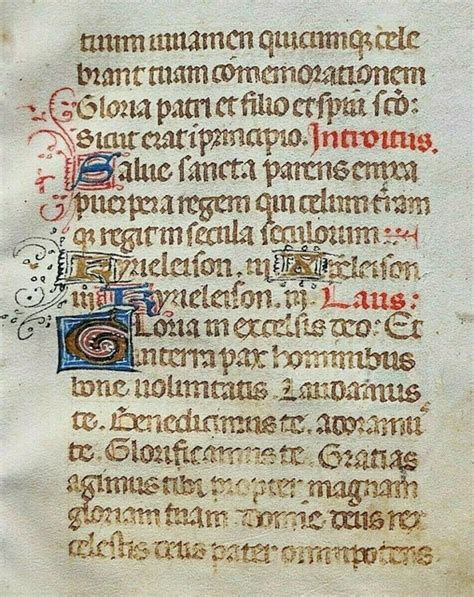 tuum iuuamen quicumq; cele
brant tuam comemorationem
Gloria patri et filio et spui sco:
Sicut erat i principio. Introitus.
Salue sancta parens enixa
puerpera regem qui celum tram
q; regit in secula seculorum
Kyrieleison. iij Xpeleison
iij Kyrieleison. iij. Laus:
Gloria in excelsis deo: Et
in terra pax hominibus
bone uoluntatis Laudamus
te. Benedicimus te. adoramu
te. Glorificamus te. Gratias
agimus tibi propter magnam
gloriam tuam Domie deus rex
celestis deus pater omnipotens